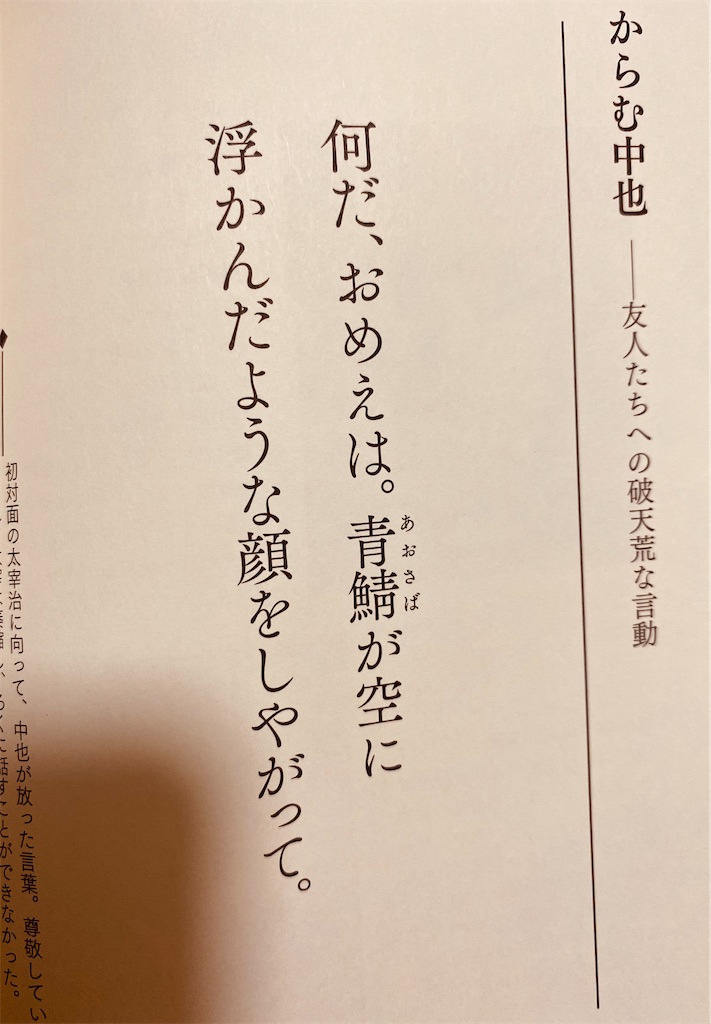 からむ中也 ──友人たちへの破天荒な言動
何だ、おめえは。青鯖が空に
あおさば
浮かんだような顔をしやがって。
◆── 初対面の太宰治に向って、中也が放った言葉。尊敬してい
ろくに話すことができなかった。